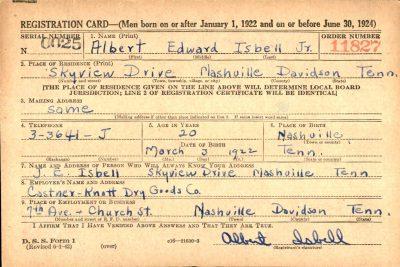 REGISTRATION CARD—(Men born on or after January 1, 1922 and on or before June 30, 1924)
SERIAL NUMBER 1. NAME (Print) ORDER NUMBER
N 0025 Albert Edward Isbell Jr. 11827
(First) (Middle) (Last)
2. PLACE OF RESIDENCE (Print)
Skyview Drive Nashville Davidson Tenn.
(Number and street) (Town, township, village, or city) (County) (State)
[THE PLACE OF RESIDENCE GIVEN ON THE LINE ABOVE WILL DETERMINE LOCAL BOARD
JURISDICTION; LINE 2 OF REGISTRATION CERTIFICATE WILL BE IDENTICAL]
3. MAILING ADDRESS
Same
(Mailing address if other than place indicated on line 2. If same insert word same)
4. TELEPHONE 5. AGE IN YEARS 6. PLACE OF BIRTH
3-3641-J 20 Nashville
DATE OF BIRTH (Town or county)
March 3 1922 Tenn.
(Exchange) (Number) (Mo.) (Day) (Yr.) (State or country)
7. NAME AND ADDRESS OF PERSON WHO WILL ALWAYS KNOW YOUR ADDRESS
J. E. Isbell Skyview Drive Nashville Tenn
8. EMPLOYER'S NAME AND ADDRESS
Castner-Knott Dry Goods Co
9. PLACE OF EMPLOYMENT OR BUSINESS
7th Ave. - Church St. Nashville Davidson Tenn.
(Number and street or R. F. D. number) (Town) (County) (State)
I AFFIRM THAT I HAVE VERIFIED ABOVE ANSWERS AND THAT THEY ARE TRUE.
D. S. S. Form 1
(Revised 6-9-42) (over) Albert Isbell
(Registrant's signature)